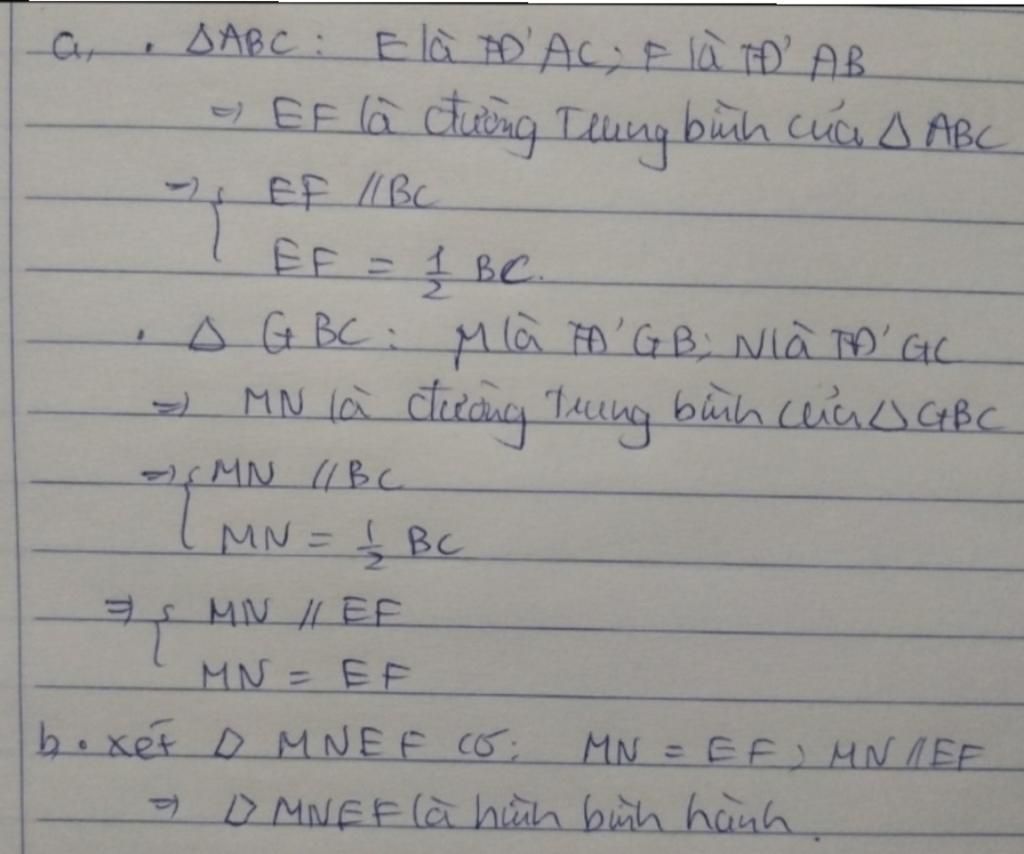 a, . ΔABC: E là TĐ' AC; F là TĐ' AB
=> EF là đường trung bình của Δ ABC
=> { EF // BC
EF = 1/2 BC.
. Δ GBC: M là TĐ' GB; N là TĐ' GC
=> MN là đường trung bình của Δ GBC
=> { MN // BC
MN = 1/2 BC
=> { MN // EF
MN = EF
b. xét ▱ MNEF có: MN = EF; MN // EF
=> ▱ MNEF là hình bình hành.